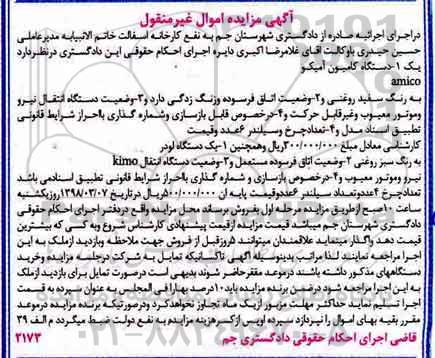 آگهی مزایده اموال غیرمنقول
دراجرای اجرائیه صادره از دادگستری شهرستان جم به نفع کارخانه اسفالت خاتم الانبیابه مدیرعاملی
حسین حیدری باوکالت اقای غلامرضا اکبری دایره اجرای احکام حقوقی این دادگستری درنظردارد
یک ۱-دستگاه کامیون آمیکو
amico
به رنگ سفید روغنی و۲-وضعیت اتاق فرسوده وزنگ زدگی دارد و۳-وضعیت دستگاه انتقال نیرو
وموتور معیوب وغیرقابل حرکت و۴-درخصوص قابل بازسازی وشماره گذاری بااحراز شرایط قانونی
تطبیق اسناد مدل و۴-تعدادچرخ وسیلندر ۶عدد وقیمت
کارشناسی معادل مبلغ ۳۰۰/۰۰۰/۰۰۰ریال وهمچنین ۱-یک دستگاه لودر
به رنگ سبز روغنی ۲-وضعیت اتاق فرسوده مستعمل و۳-وضعیت دستگاه انتقال kimo
نیرو وموتور معیوب و۴-درخصوص بازسازی و شماره گذاری بااحراز شرایط قانونی تطبیق اسنادمی باشد
تعدادچرخ ۴عددوتعداد سیلندر ۶عددوقیمت پایه ان ۵۰۰/۰۰۰/۰۰۰ریال درتاریخ ۱۳۹۸/۰۳/۰۷روزیکشنبه
ساعت ۱۰صبح ازطریق مزایده مرحله اول بفروش برسد محل مزایده واقع دردفتر اجرای احکام حقوقی
دادگستری شهرستان جم میباشد قیمت مزایده ازقیمت پیشنهادی کارشناس شروع وبه کسی که بیشترین
قیمت دهد واگذار مینماید علاقمندان میتوانند ۵روزقبل از فروش جهت ملاحظه وبازدید ازملک به این
اجرا مراجعه نمایند لذا مراتب بدینوسیله آگهی تاکسانیکه تمایل به شرکت درجلسه مزایده وخرید
دستگاههای مذکور داشته باشند درموعد مقرر حاضر شوند بدیهی است درصورت تمایل برای بازدید ازملک
به این اجرا مراجعه شود درضمن برنده مزایده باید ۱۰درصد بهارا فی المجلس به عنوان سپرده به قسمت
اجرا تسلیم نماید حداکثر مهلت مزبور از یک ماه تجاوز نخواهدکرد ودرصورتیکه برنده مزایده درموعد
مقرر بقیه بهای اموال را نپردازد سپرده اوپس ازکسرهزینه مزایده به نفع دولت ضبط میگردد م الف ۳۹
قاضی اجرای احکام حقوقی دادگستری جم
۲۱۷۳